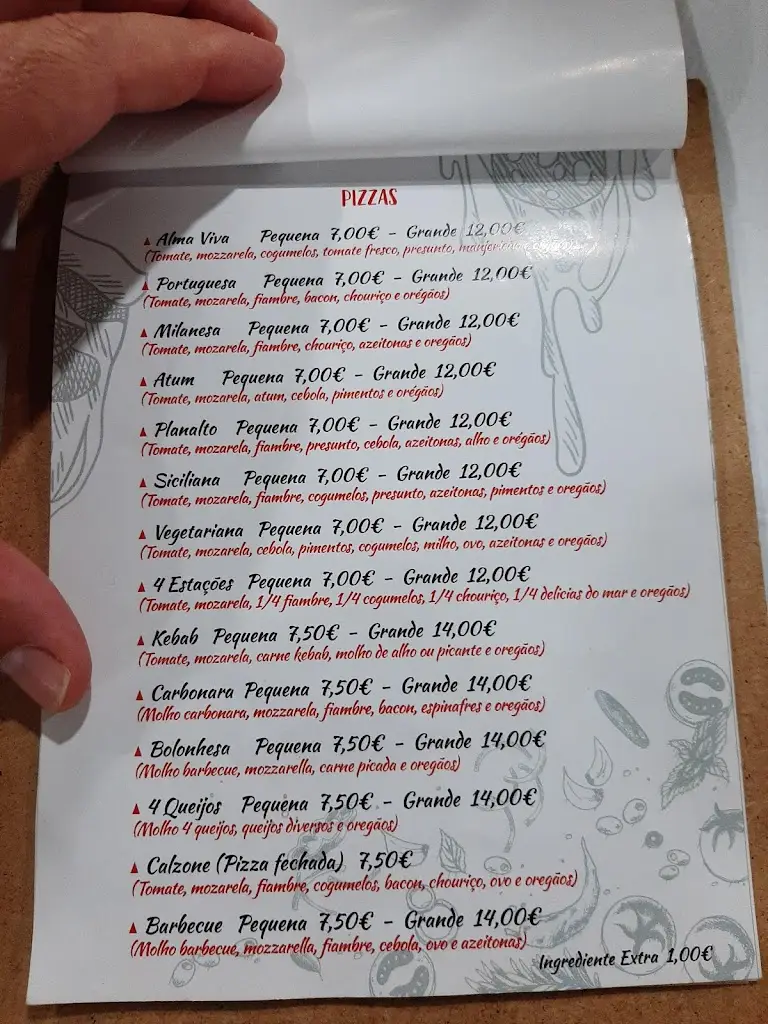 PIZZAS
Alma Viva Pequena 7,00€ - Grande 12,00€
(Tomate, mozzarela, cogumelos, tomate fresco, presunto,
Portuguesa Pequena 7,00€ - Grande 12,00€
(Tomate, mozarela, fiambre, bacon, chouriço e orégãos)
Milanesa Pequena 7,00€ - Grande 12,00€
(Tomate, mozarela, fiambre, chouriço, azeitonas e oregãos)
Atum Pequena 7,00€ - Grande 12,00€
(Tomate, mozarela, atum, cebola, pimentos e orégãos)
Planalto Pequena 7,00€ - Grande 12,00€
(Tomate, mozarela, fiambre, presunto, cebola, azeitonas, alho e orégãos)
Siciliana Pequena 7,00€ - Grande 12,00€
(Tomate, mozarela, fiambre, cogumelos, presunto, azeitonas, pimentos e oregãos)
Vegetariana Pequena 7,00€ - Grande 12,00€
(Tomate, mozarela, cebola, pimentos, cogumelos, milho, ovo, azeitonas e oregãos)
4 Estações Pequena 7,00€ - Grande 12,00€
(Tomate, mozarela, 1/4 fiambre, 1/4 cogumelos, 1/4 chouriço, 1/4 delicias do mar e oregãos)
Kebab Pequena 7,50€ - Grande 14,00€
(Tomate, mozarela, carne kebab, molho de alho ou picante e oregãos)
Carbonara Pequena 7,50€ - Grande 14,00€
(Molho carbonara, mozzarela, fiambre, bacon, espinafres e oregãos)
Bolonhesa Pequena 7,50€ - Grande 14,00€
(Molho barbecue, mozzarella, carne picada e oregãos)
4 Queijos Pequena 7,50€ - Grande 14,00€
(Molho 4 queijos, queijos diversos e oregãos)
Calzone (Pizza fechada) 7,50€
(Tomate, mozarela, fiambre, cogumelos, bacon, chouriço, ovo e oregãos)
Barbecue Pequena 7,50€ - Grande 14,00€
(Molho barbecue, mozzarella, fiambre, cebola, ovo e azeitonas)
Ingrediente Extra 1,00€